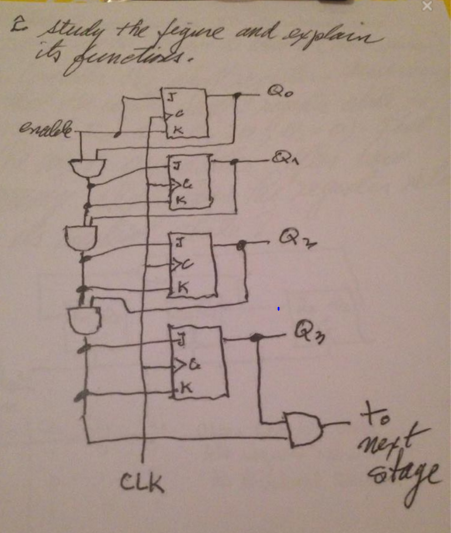 study the figure and explain
its functions.
J Q0
C
enable K
J Q1
C
K
J Q2
C
K
J Q3
C
K
to
next
stage
CLK